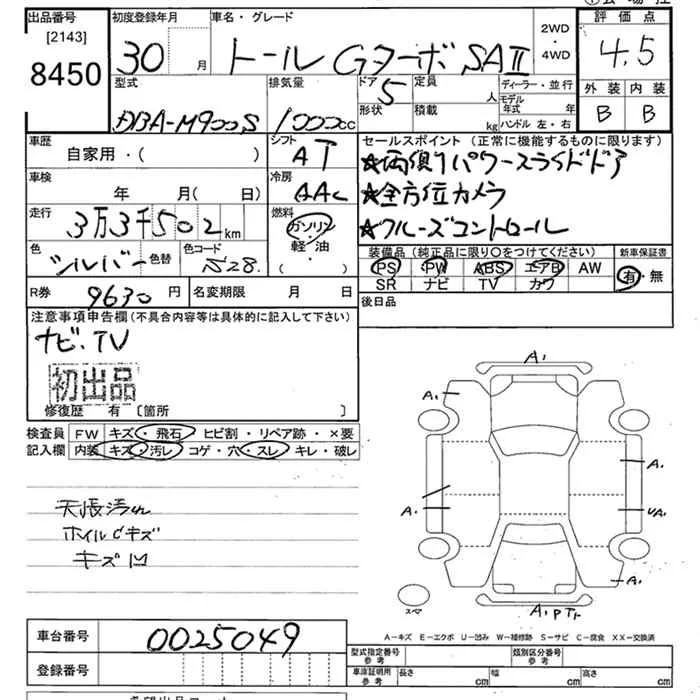 出品番号
[2143]
8450
初度登録年月
30 月
車名・グレード
トール Gターボ SAⅡ
2WD
・
4WD
評価点
4.5
外装 内装
B B
型式
DBA-M900S
排気量
1000cc
ドア
5
形状
定員
人
積載
kg
ディーラー・並行
モデル年式 年
ハンドル 左・右
車歴
自家用・( )
シフト
AT
車検
年 月( 日)
冷房
AAC
走行
3万3千502km
燃料
ガソリン
・
軽・油
( )
色
シルバー
色替
色コード
S28.
セールスポイント(正常に機能するものに限ります)
★両側パワースライドドア
★全方位カメラ
★クルーズコントロール
装備品(純正品に限り○をつけてください)
PS PW ABS エアB AW
SR ナビ TV カワ
新車保証書
有・無
R券 9630円
名変期限 月 日
後日品
注意事項申告欄(不具合内容等は具体的に記入して下さい)
ナビ・TV
初出品
修復歴 有 〔箇所 〕
検査員記入欄
FW キズ・飛石 ヒビ割・リペア跡・×要
内装 キズ・汚レ コゲ・穴・スレ キレ・破レ
天張汚れ
ホイルCキズ
キズ凹
A.
A.
A.
A.
A.
UA.
A.
A.PTr
スペ
A-キズ E-エクボ U-凹み W-補修跡 S-サビ C-腐食 XX-交換済
車台番号 0025049
登録番号
型式指定番号
参考
類別区分番号
参考
車庫証明用
参考
長さ cm
幅 cm
高さ cm